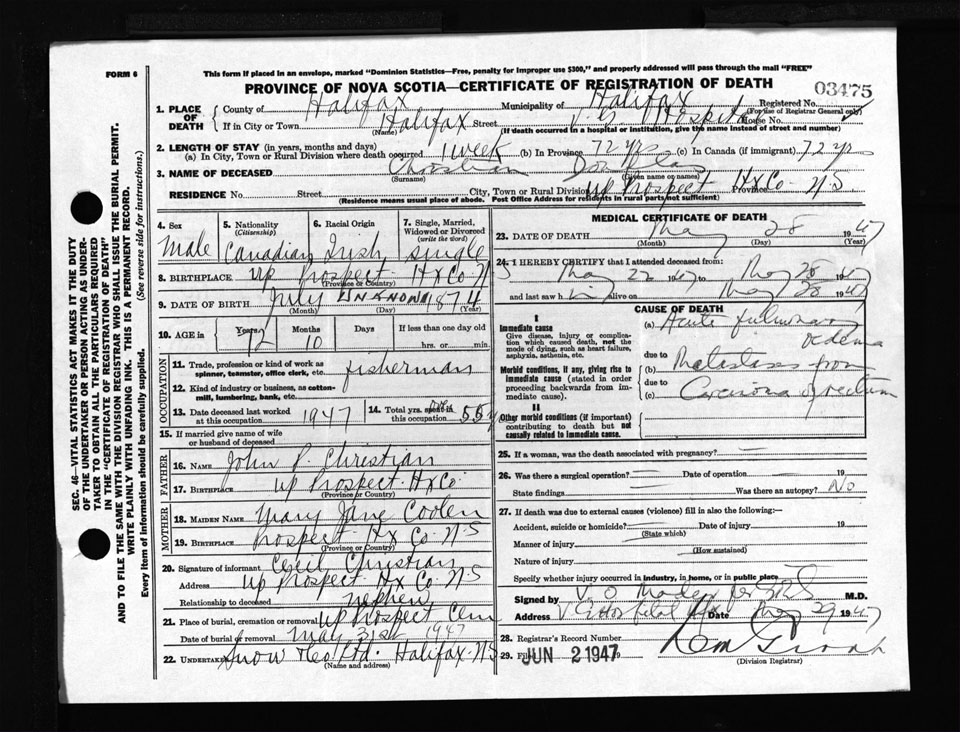 FORM 6
This form if placed in an envelope, marked "Dominion Statistics—Free, penalty for improper use $300," and properly addressed will pass through the mail "FREE"
PROVINCE OF NOVA SCOTIA—CERTIFICATE OF REGISTRATION OF DEATH
03475
1. PLACE OF DEATH { County of Halifax Municipality of Halifax Registered No.
(For use of Registrar General only)
If in City or Town Halifax Street V. G. Hospital House No.
(Name) (If death occurred in a hospital or institution, give the name instead of street and number)
2. LENGTH OF STAY (in years, months and days)
(a) In City, Town or Rural Division where death occurred 1 week (b) In Province 72 yrs (c) In Canada (if immigrant) 72 yrs
3. NAME OF DECEASED Christian Douglas
(Surname) (Given name or names)
RESIDENCE No. Street City, Town or Rural Division Up Prospect Province Hx Co N-S
(Residence means usual place of abode. Post Office Address for residents in rural parts not sufficient)
4. Sex
Male
5. Nationality (Citizenship)
Canadian
6. Racial Origin
Irish
7. Single, Married, Widowed or Divorced (write the word)
Single
8. BIRTHPLACE Up Prospect Hx Co N-S
(Province or Country)
9. DATE OF BIRTH July UNKNOWN 1874
(Month) (Day) (Year)
10. AGE in Years 72 Months 10 Days If less than one day old
hrs. or min.
OCCUPATION
11. Trade, profession or kind of work as spinner, teamster, office clerk, etc. fisherman
12. Kind of industry or business, as cotton-mill, lumbering, bank, etc.
13. Date deceased last worked at this occupation 1947
14. Total yrs. spent in this occupation 55 y
15. If married give name of wife or husband of deceased
FATHER
16. NAME John P. Christian
17. BIRTHPLACE Up Prospect Hx Co.
(Province or Country)
MOTHER
18. MAIDEN NAME Mary Jane Coolen
19. BIRTHPLACE Prospect Hx Co N-S
(Province or Country)
20. Signature of informant Cecil Christian
Address Up Prospect Hx Co N-S
Relationship to deceased nephew
21. Place of burial, cremation or removal Up Prospect Cem
Date of burial or removal May 31st 1947
22. Undertaker Snow & Co Ltd. Halifax N-S
(Name and address)
MEDICAL CERTIFICATE OF DEATH
23. DATE OF DEATH May 28 1947
(Month) (Day) (Year)
24. I HEREBY CERTIFY that I attended deceased from:
May 22 1947 to May 28 1947
and last saw him alive on May 28 1947
CAUSE OF DEATH
I
Immediate cause
Give disease, injury or complication which caused death, not the mode of dying, such as heart failure, asphyxia, asthenia, etc.
(a) Acute pulmonary oedema
due to
Morbid conditions, if any, giving rise to immediate cause (stated in order proceeding backwards from immediate cause).
(b) Metastases from
due to
(c) Carcinoma of rectum
II
Other morbid conditions (if important) contributing to death but not causally related to immediate cause.
25. If a woman, was the death associated with pregnancy?
26. Was there a surgical operation? Date of operation 19
State findings Was there an autopsy? No
27. If death was due to external causes (violence) fill in also the following:—
Accident, suicide or homicide? Date of injury 19
(State which)
Manner of injury
(How sustained)
Nature of injury
Specify whether injury occurred in industry, in home, or in public place
Signed by V. O. Mader M.D.
Address Date May 29 1947
28. Registrar's Record Number
29. JUN 2 1947 9
(Division Registrar)
SEC. 46—VITAL STATISTICS ACT MAKES IT THE DUTY
OF THE UNDERTAKER OR PERSON ACTING AS UNDER-
TAKER TO OBTAIN ALL THE PARTICULARS REQUIRED
IN THE "CERTIFICATE OF REGISTRATION OF DEATH"
AND TO FILE THE SAME WITH THE DIVISION REGISTRAR WHO SHALL ISSUE THE BURIAL PERMIT.
WRITE PLAINLY WITH UNFADING INK. THIS IS A PERMANENT RECORD.
Every item of information should be carefully supplied. (See reverse side for instructions.)